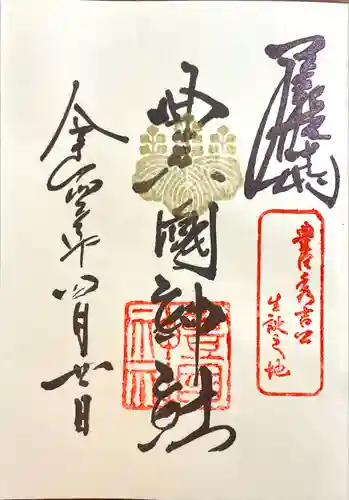 豊臣秀吉公
生誕之地
豊國神社
令和四年四月廿日